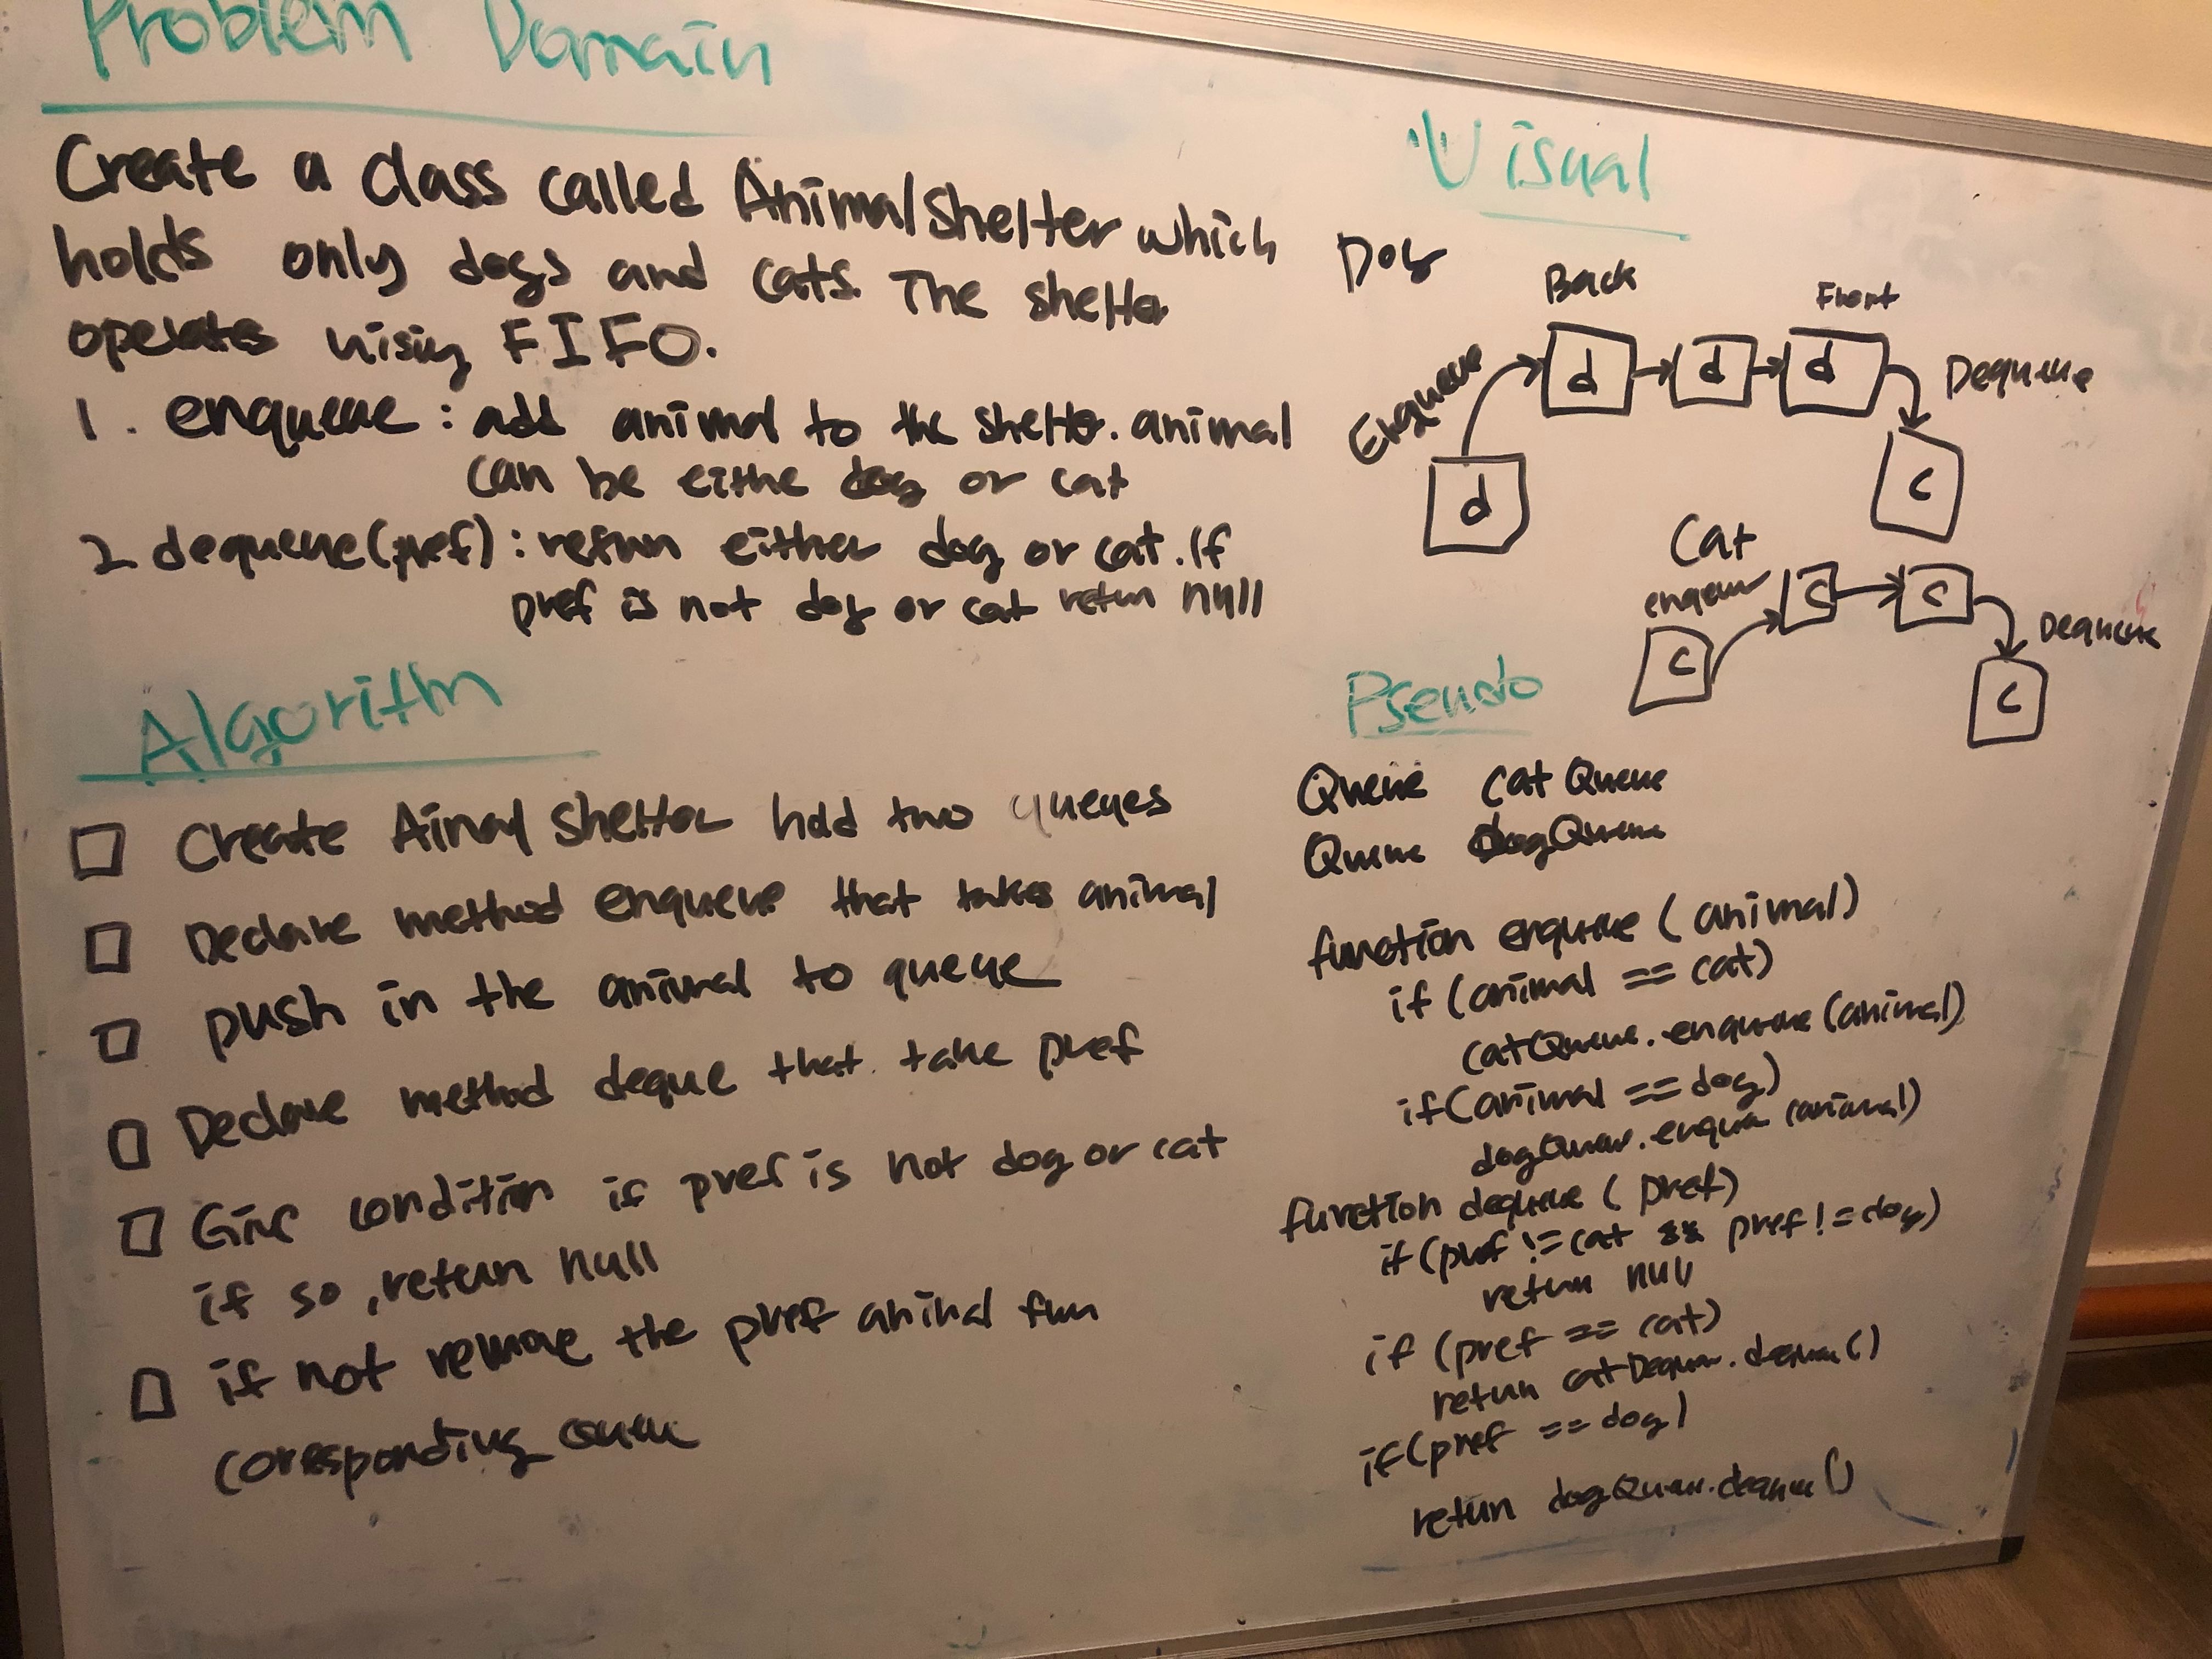 Problem Domain
Create a class called AnimalShelter which
holds only dogs and cats. The shelter
operates using FIFO.
1. enqueue : add animal to the shelter. animal
can be eithe dog or cat
2 dequeue(pref) : return either dog or cat. if
pref is not dog or cat return null
Algorithm
Create Ainal Shelter hold two queues
Declare method enqueue that takes animal
push in the animal to queue
Declare method deque that take pref
Give condition if pref is not dog or cat
if so, return null
if not remove the pref animal from
corresponding queue
Visual
Dog
Back
Front
Enqueue
d
d
d
Dequeue
d
c
Cat
enqueue
c
c
Dequeue
c
c
Pseudo
Queue catQueue
Queue dogQueue
function enqueue (animal)
if (animal == cat)
catQueue.enqueue(animal)
if(animal == dog)
dogQueue.enqueue(animal)
function dequeue (pref)
if (pref != cat && pref != dog)
return null
if (pref == cat)
return catDequeue.dequeue()
if(pref == dog)
return dogQueue.dequeue()